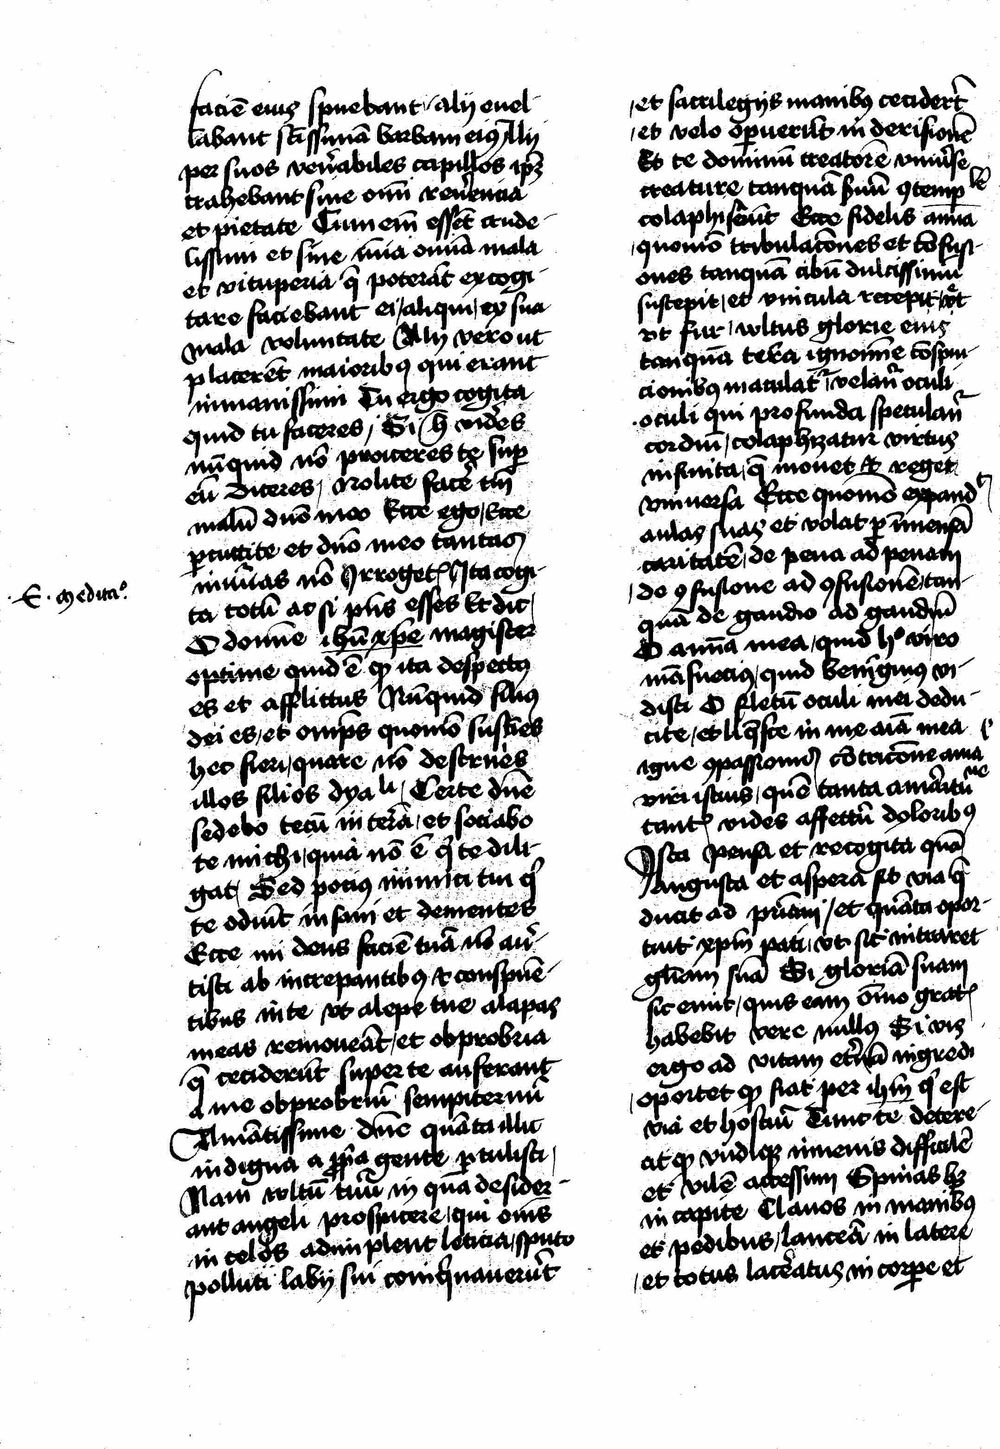 faciē eius spuebant / alij euel-
labant sc̄issimā barbam eiꝰ Alij
per suos ven̄abiles capillos ip̄m
trahebant sine omī reūencia
et pietate Cum em̄ essēt crude-
lissimi et sine mīa omīa mala
et vituperia q̄ poterāt excogi-
tare faciebant ei / aliqui / ex sua
mala voluntate Alij vero ut
placerēt maioribꝰ qui erant
inmanissimi Tu ergo cogita
quid tu faceres / Si h̄ vid̄es
nūquid nō proiceres te sup̄
eū Diceres / Nolite facē tm̄
malū dn̄o meo Ecce ego / Ecce
ꝑcutite et dn̄o meo tantas
iniurias nō Irrogetꝭ Ita cogi-
.E. meditaͦ.
ta totū ac si p̄ns esses Et dic /
O domīe ihū xp̄e magister
optime quid ē ꝙ ita despectꝰ
es et afflictus Nūquid filiꝰ
dei es / et omp̄s quomō sustīes
hec fieri / quare nō destruēs
illos filios dyaᵇli / Certe dn̄e
sedebo tecū in terā / et sociabo
te michi / quia nō ē q̇ te dili-
gat / Sed pociꝰ inimici tui q̇
te odiūt insani et dementes
Ecce mi deus faciē tuā nō au̅-
tisti ab increpantibꝰ et conspuē-
tibus in te vt alape tue alapas
meas remoueāt / et obprobria
q̄ ceciderūt super te auferant
a me obprobriū sempiternū
Amātissime dn̄e quāta illic
indigna a ꝓpͥa gente ꝑtulisti /
Nam vultū tuū in quā desider-
ant angeli prospicere / qui om̄s
in celos adimplent leticia / sputo
polluti labij sui coinquinauerūt
et sacrilegijs manibꝰ cecidert̄
et velo op̄uerūt in derisionē
Et te dominū creatorē vniūse
creature tanquā ẜuū ꝯtempᵇˡᵉ
colaphisauēt Ecce fidelis anīa
quomō tribulacōnes et cōfusi-
ones tanquā cibū dulcissimū
suscepit / et vincula recepit
vt fur / vultus glorie eius
tanquā terra ignomīe cōspui-
cionibꝰ maculatͬ / velant̄ oculi
oculi qui profunda speculant̄
cordiū / colaphizatur virtus
infinita / q̄ mouet et reget
vniuersa Ecce quomō expandᵗ
aulas suas et volat ꝑ īmensā
caritatē / de pena ad penam
de ꝯfusione ad ꝯfusionē / tan-
quā de gaudio ad gaudiū
O anīa mea / quid hͦ viro
māsueciꝰ / quid benigniꝰ vi-
disti O fletū oculi mei dedu-
cite / et liq̄sce in me aīa mea
igne ꝯpassionis / cōtricōne ama
viri istius / quē tanta amaritu
tantꝭ vides affectū doloribꝰ
Ista pensa et recogita quā
angusta et aspera sit via q̄
ducit ad pr̄iam / et quāta opor-
tuit xp̄m pati / vt sic intraret
gl̄iam suā Si gloriā suam
sic emit / quis eam om̄io gratꝭ
habebit vere nullꝰ Si vis
ergo ad vitam et̄nā ingredi
oportet ꝙ fiat per ihm̄ q̇ est
via et hostiū Tunc te detere-
at ꝙ vndiqꝫ inuenis difficilē
et vilē accessum Spinas hꝫ
in capite Clauos in manibꝰ
et pedibus / lanceā in latere
et totus lac̄atus in corꝑe et